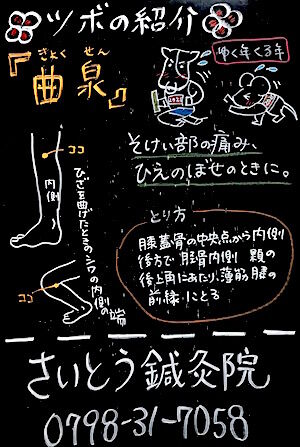 ツボの紹介
『曲泉』
きょく せん
ゆく年くる年
ココ
内側
ひざを曲げたところのシワの内側の端
ココ
そけい部の痛み、
ひえのぼせのときに。
とり方
膝蓋骨の中央点から内側
後方で 脛骨内側 顆の
後上角にあたり、薄筋腱の
前縁にとる
さいとう鍼灸院
0798-31-7058